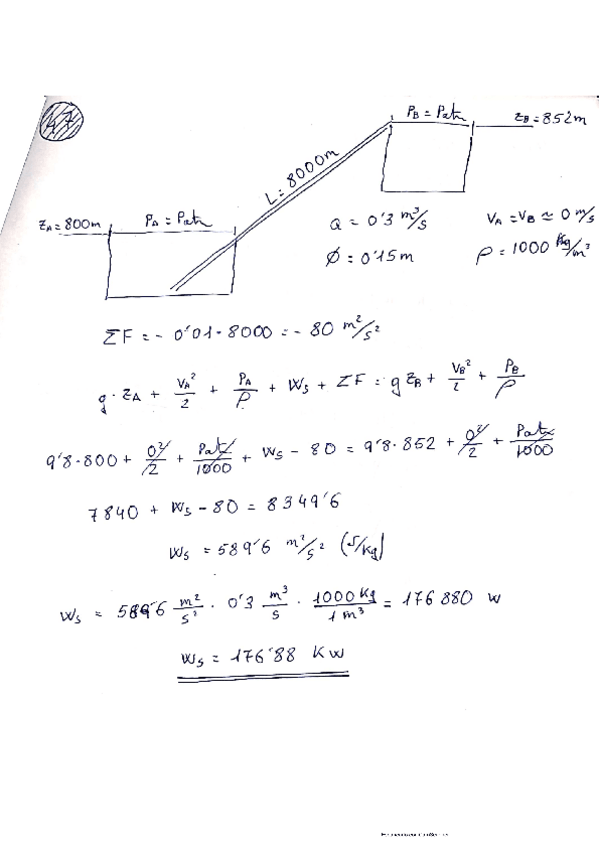 47
PB = Patm
ZB = 852m
L = 8000m
ZA = 800m
PA = Patm
Q = 0'3 m³/s
VA = VB ≃ 0 m/s
Ø = 0'15 m
ρ = 1000 Kg/m³
ΣF = - 0'01 · 8000 = - 80 m²/s²
g · ZA + VA²/2 + PA/ρ + Ws + ΣF = g ZB + VB²/2 + PB/ρ
9'8 · 800 + 0²/2 + Patm/1000 + Ws - 80 = 9'8 · 852 + 0²/2 + Patm/1000
7840 + Ws - 80 = 8349'6
Ws = 589'6 m²/s² (J/Kg)
Ws = 589'6 m²/s² · 0'3 m³/s · 1000 Kg/1 m³ = 176 880 W
Ws = 176'88 KW